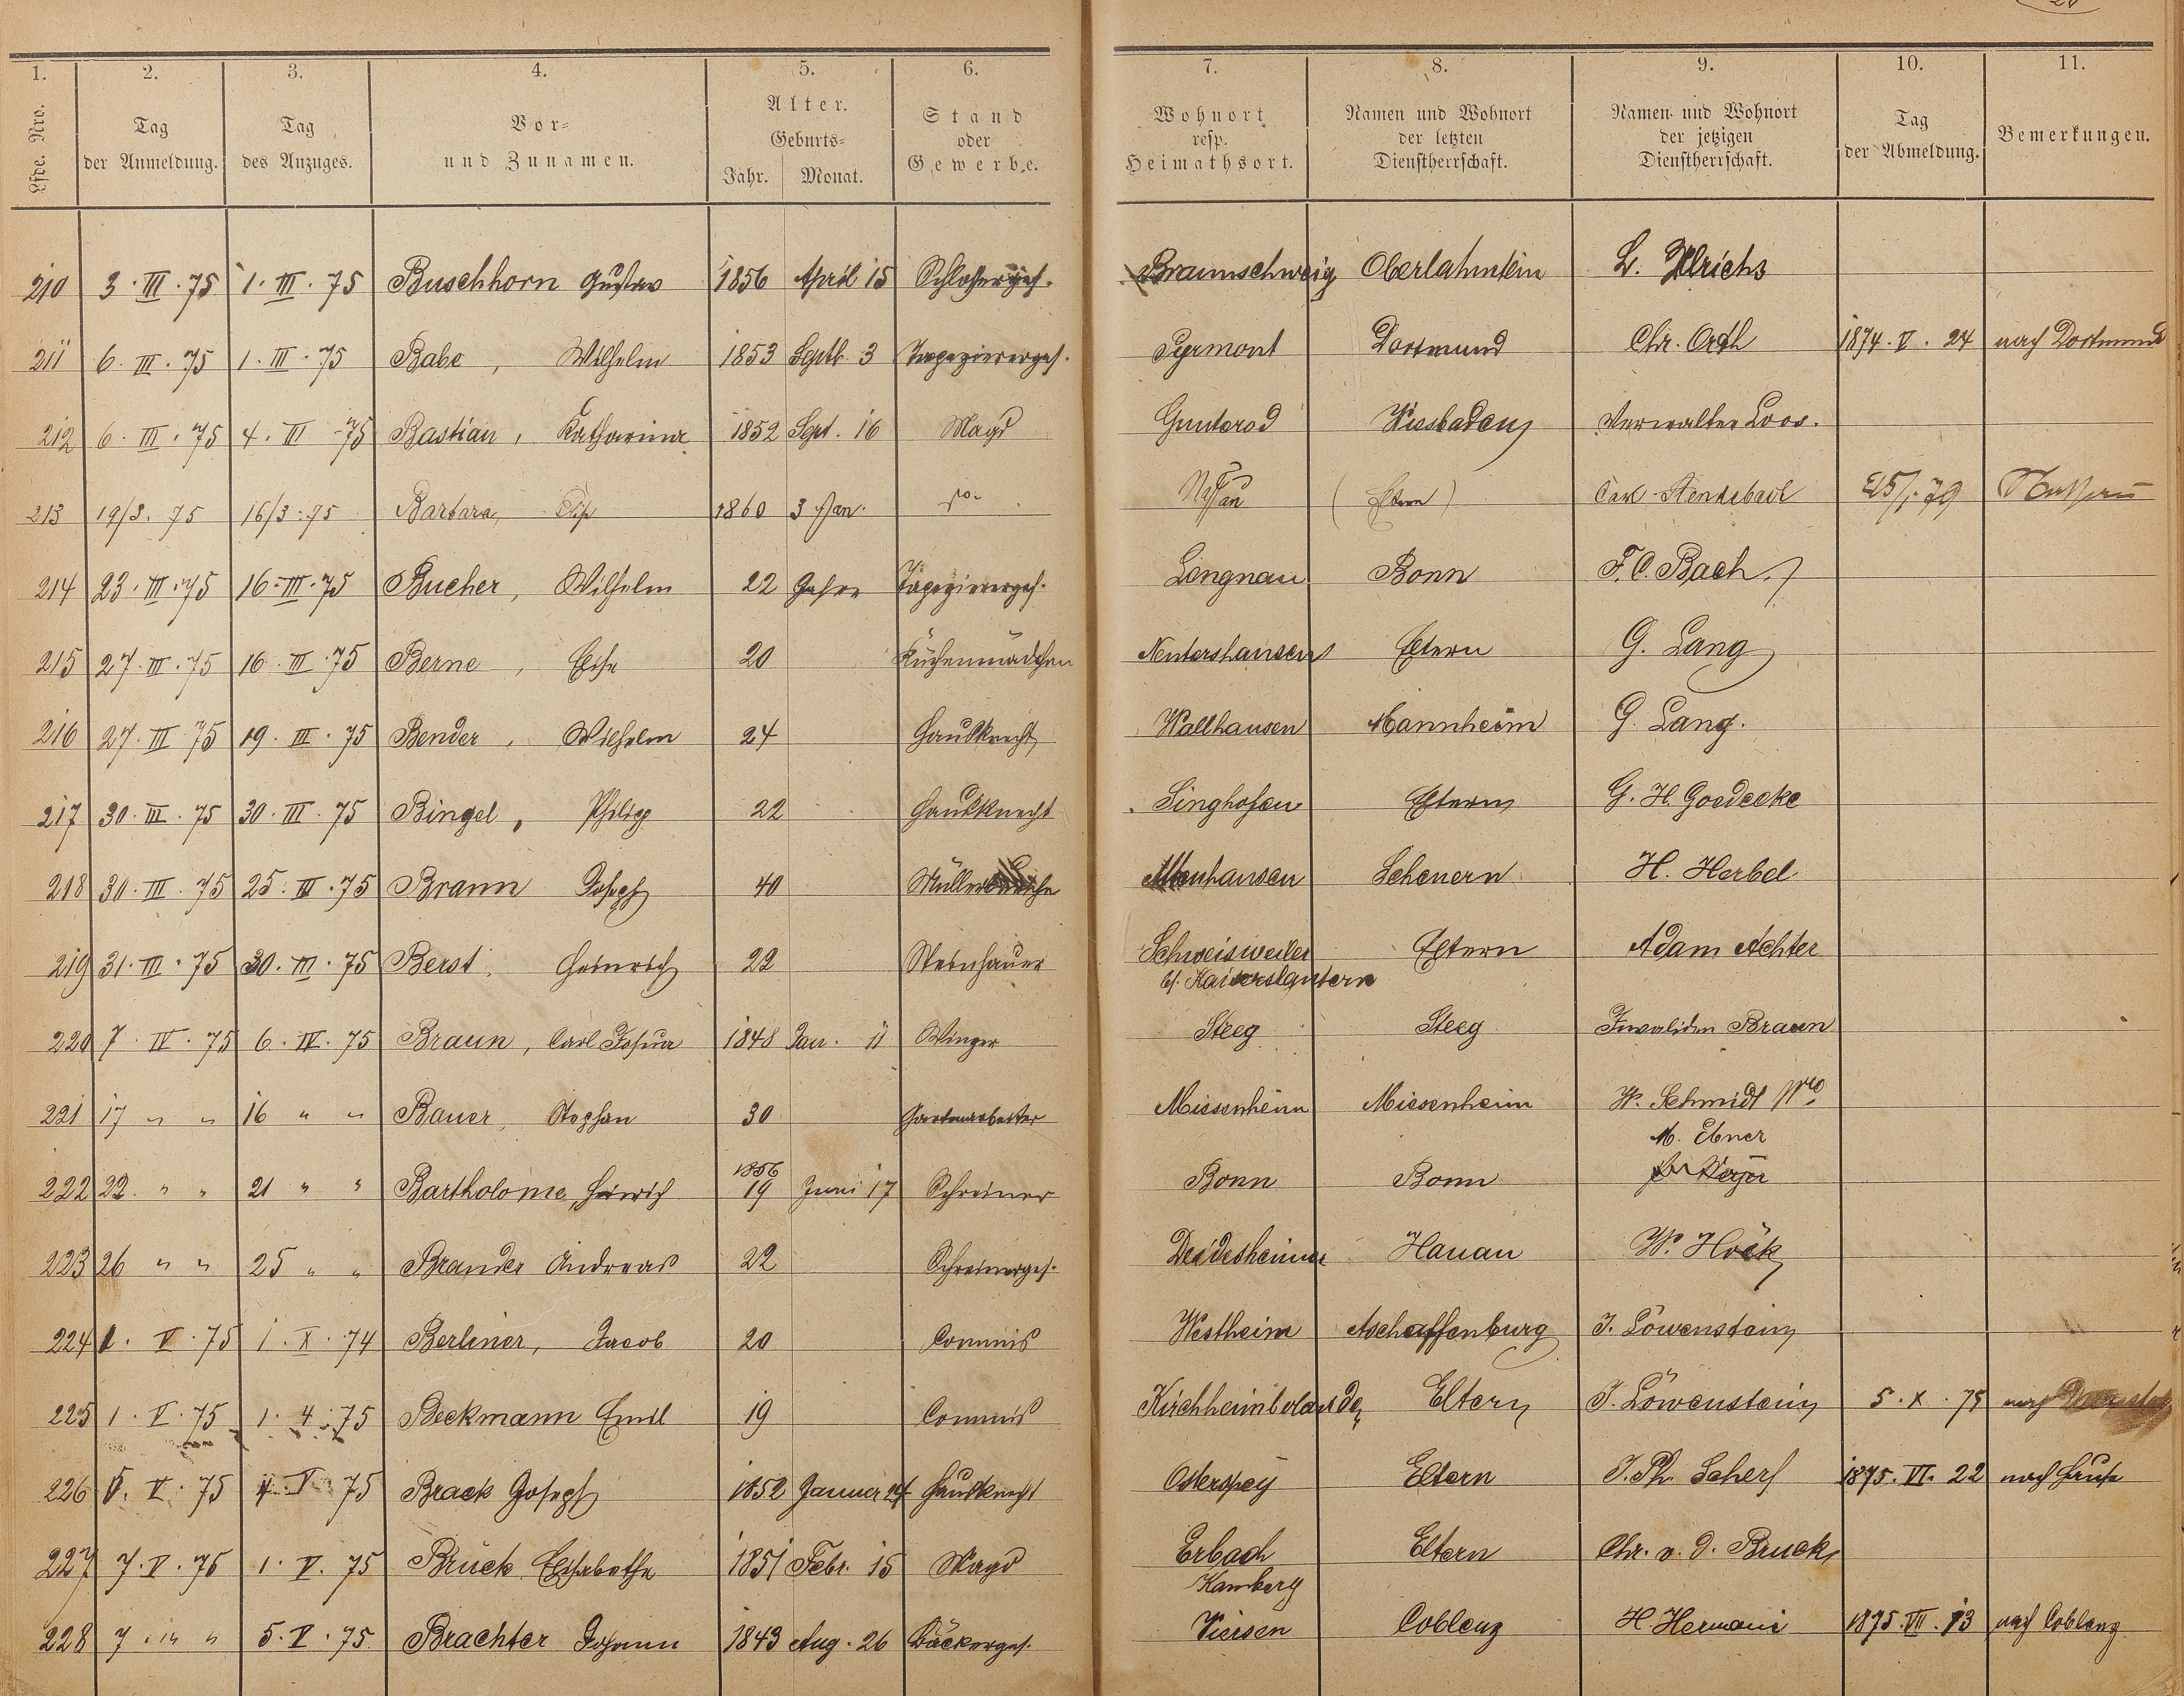 1. 2. 3. 4. 5. 6. 7. 8. 9. 10. 11.
Lfde. Nro. Tag der Anmeldung. Tag des Anzuges. Vor- und Zunamen. Alter. Geburts- Jahr. Monat. Stand oder Gewerbe. Wohnort resp. Heimathsort. Namen und Wohnort der letzten Dienstherrschaft. Namen und Wohnort der jetzigen Dienstherrschaft. Tag der Abmeldung. Bemerkungen.
210 3. III. 75 1. III. 75 Buschhorn Gustav 1856 April 15 Schlosserges. Braunschweig Oberlahnstein L. Ulrichs
211 6. III. 75 1. III. 75 Babe, Wilhelm 1853 Septb. 3 Tapeziererges. Pyrmont Dortmund Chr. Orth 1874. V. 24 nach Dortmund
212 6. III. 75 4. III. 75 Bastian, Katharina 1852 Sept. 16 Magd Gunterod Wiesbaden Verwalter Loos.
213 19/3. 75 16/3. 75 Barbara, Elise 1860 3 Jan. do. Nassau (Eltern) Carl 25/1. 79 Nassau
214 23. III. 75 16. III. 75 Bucher, Wilhelm 22 Jahre Tapeziererges. Longnau Bonn F. C. Bach.
215 27. III. 75 16. III. 75 Berne, Elise 20 Küchenmädchen Nentershausen Eltern G. Lang
216 27. III. 75 19. III. 75 Bender, Wilhelm 24 Hausknecht Wallhausen Mannheim G. Lang.
217 30. III. 75 30. III. 75 Bingel, Philipp 22 Hausknecht Singhofen Eltern G. H. Goedecke
218 30. III. 75 25. III. 75 Braun Joseph 40 Scheuern H. Herbel
219 31. III. 75 30. III. 75 Berst, Heinrich 22 Steinhauer Schweisweiler Eltern Adam Achter
b/. Kaiserslautern
220 7. IV. 75 6. IV. 75 Braun, Carl Josua 1848 Jan. 11 Winzer Steeg Steeg Invaliden Braun
221 17 " " 16 " " Bauer, Stephan 30 Gartenarbeiter Miesenheim Miesenheim W. Schmidt Wwe
M. Ebner
222 22. " " 21 " " Bartholome, Heinrich 1856 19 Juni 17 Schreiner Bonn Bonn
223 26 " " 25 " " Brander Andreas 22 Schreinerges. Deidesheim Hanau W. Höck
224 1. V. 75 1. X. 74 Berliner, Jacob 20 Commis Westheim Aschaffenburg J. Löwenstein
225 1. V. 75 1. 4. 75 Beckmann Emil 19 Commis Kirchheimbolanden Eltern J. Löwenstein 5. X. 75 nach
226 5. V. 75 4. V 75 Brack Joseph 1852 Januar 24 Hausknecht Osterspey Eltern J. Ph. Scherf 1875. VI. 22 nach Hause
227 7. V. 75 1. V. 75 Brück Elisabethe 1851 Febr. 15 Magd Erbach Eltern Chr. v. d. Bruck
Kamberg
228 7. " " 5. V. 75 Brachter Johann 1843 Aug. 26 Bäckerges. Viersen Coblenz H. Hermani 1875. VII. 13 nach Coblenz